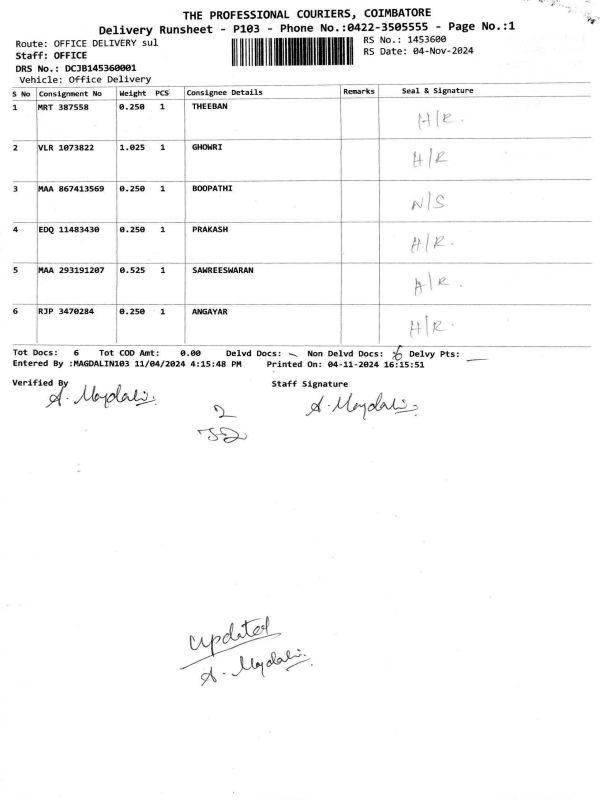 THE PROFESSIONAL COURIERS, COIMBATORE
Delivery Runsheet - P103 - Phone No.:0422-3505555 - Page No.:1
Route: OFFICE DELIVERY sul
RS No.: 1453600
Staff: OFFICE
RS Date: 04-Nov-2024
DRS No.: DCJB145360001
Vehicle: Office Delivery
S No Consignment No Weight PCS Consignee Details Remarks Seal & Signature
1 MRT 387558 0.250 1 THEEBAN H/R.
2 VLR 1073822 1.025 1 GHOWRI H/R
3 MAA 867413569 0.250 1 BOOPATHI N/S
4 EDQ 11483430 0.250 1 PRAKASH H/R.
5 MAA 293191207 0.525 1 SAWREESWARAN H/R.
6 RJP 3470284 0.250 1 ANGAYAR H/R.
Tot Docs: 6 Tot COD Amt: 0.00 Delvd Docs: - Non Delvd Docs: 6 Delvy Pts: —
Entered By :MAGDALIN103 11/04/2024 4:15:48 PM Printed On: 04-11-2024 16:15:51
Verified By Staff Signature
A. Magdalin A. Magdalin
2
updated
A. Magdalin